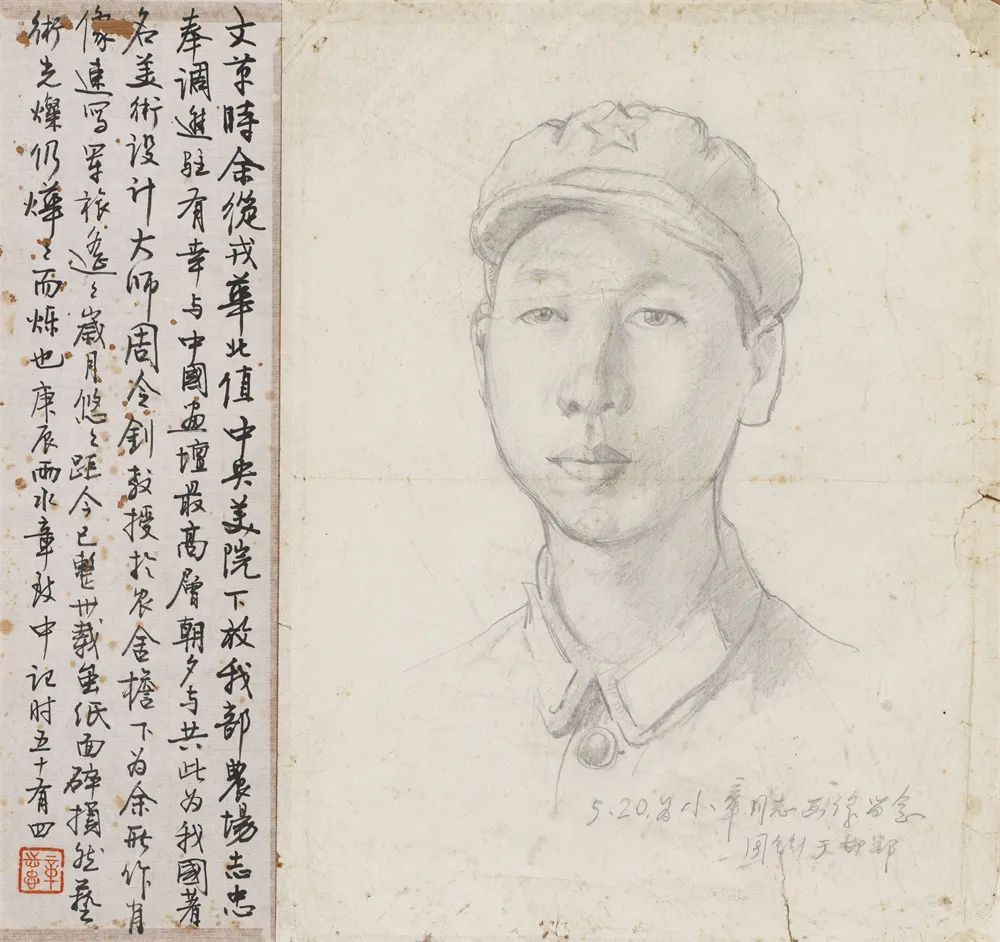 文革時余從戎華北值中央美院下放我部農場志忠
奉調進駐有幸与中國画壇最高層朝夕与共此为我國著
名美術设计大师周令釗教授於农舍檐下为余所作肖
像速写軍旅遙〻歲月悠〻距今已整卅載虽纸面碎損然藝
術光燦仍燁〻而烁也庚辰雨水章致中记时五十有四
5.20.为小章同志画像留念
周令钊于邯郸